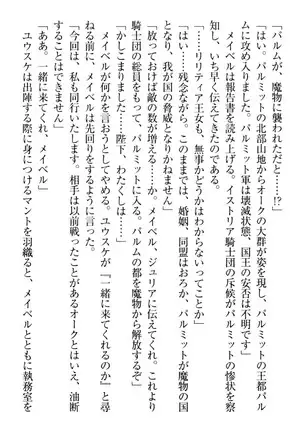 「パルムが、魔物に襲われただと……!?」
「はい。パルミットの北部山地からオークの大群が姿を現し、パルミットの王都パル
ムに攻め入りました。パルミット軍は壊滅状態、国王の安否は不明です」
メイベルは報告書を読み上げる。イストリア騎士団の斥候がパルミットの惨状を察
知し、いち早く伝えてきたのである。
「……リリティア王女も、無事かどうかはわからないってことか」
「はい……残念ながら。このままでは、婚姻、同盟はおろか、パルミットが魔物の国
となり、我が国の脅威となりかねません」
「放っておけば敵の数が増える……か。メイベル、ジュリアに伝えてくれ。イストリア
騎士団の総員をもって、パルミットに出撃する。パルムの都を魔物から解放するぞ」
「かしこまりました……陛下、わたくしは……」
メイベルが何かを言おうとしてやめる。ユウスケが『一緒に来てくれるのか』と尋
ねる前に、メイベルは先回りをするように言った。
「今回は、私も同行いたします。相手は以前戦ったことがあるオークとはいえ、油断
することはできません」
「ああ。一緒に来てくれ、メイベル」
ユウスケは出陣する際に身につけるマントを羽織ると、メイベルとともに執務室を